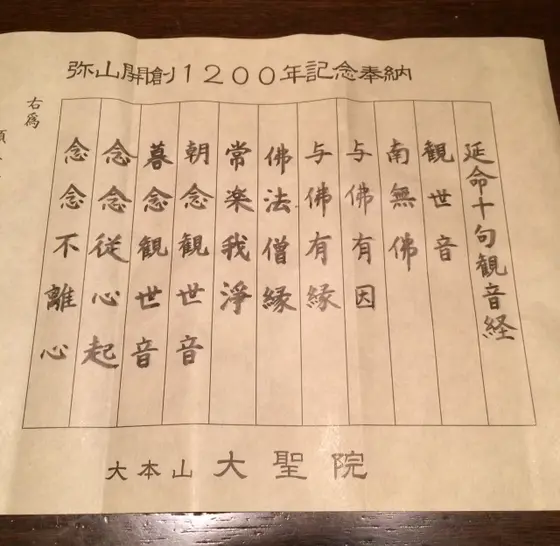 弥山開創１２００年記念奉納
延命十句観音経
観世音
南無佛
与佛有因
与佛有縁
佛法僧縁
常楽我浄
朝念観世音
暮念観世音
念念従心起
念念不離心
右為
大本山 大聖院